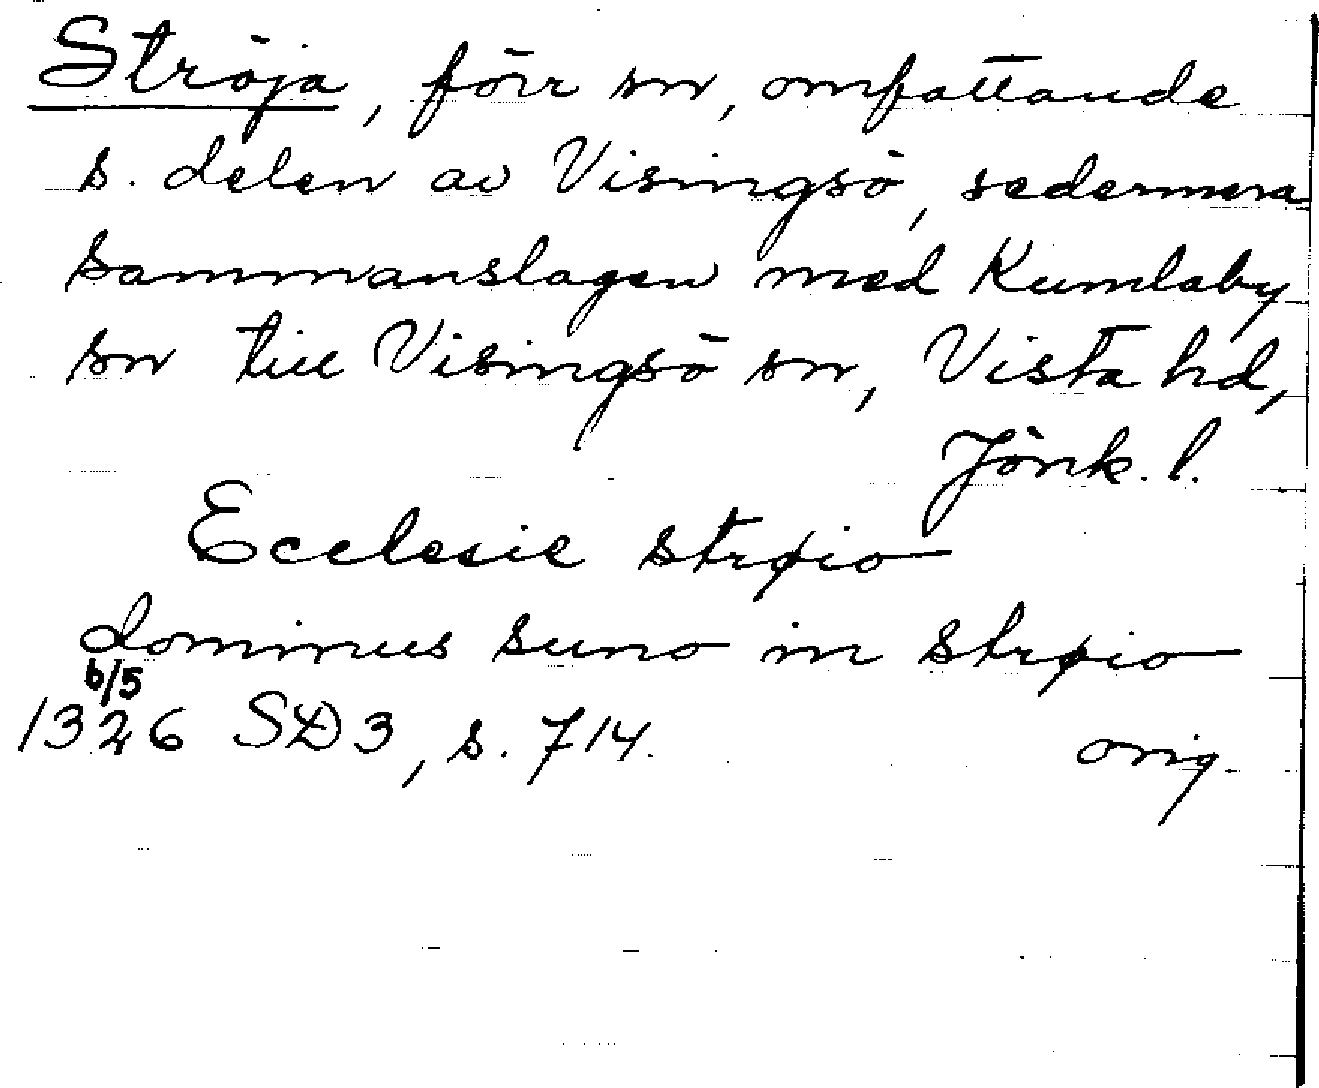 Ströja, förr sn, omfattande
s. delen av Visingsö, sedermera
sammanslagen med Kumlaby
sn till Visingsö sn, Vista hd,
Jönk. l.
Ecclesie strøio
dominus suno in strøio
6/5
1326 SD3, s. 714. orig.